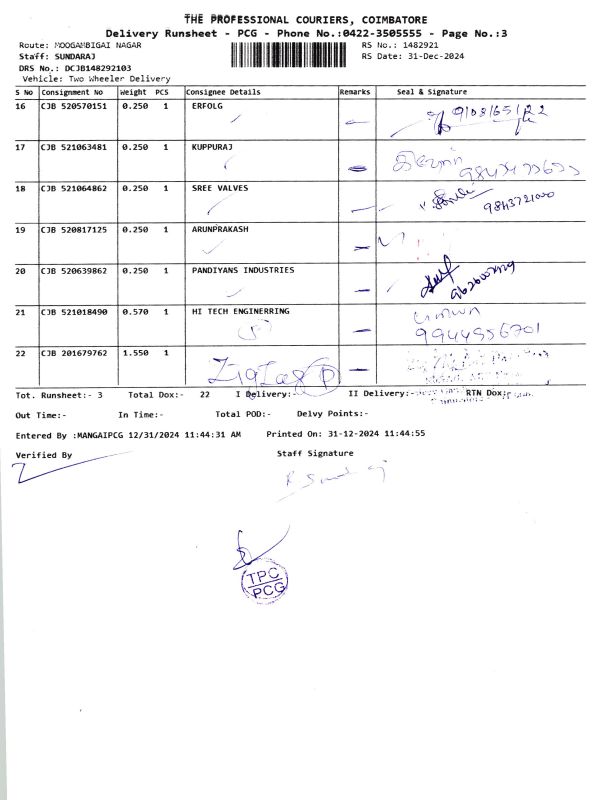 THE PROFESSIONAL COURIERS, COIMBATORE
Delivery Runsheet - PCG - Phone No.:0422-3505555 - Page No.:3
Route: MOOGAMBIGAI NAGAR RS No.: 1482921
Staff: SUNDARAJ RS Date: 31-Dec-2024
DRS No.: DCJB148292103
Vehicle: Two Wheeler Delivery
S No Consignment No Weight PCS Consignee Details Remarks Seal & Signature
16 CJB 520570151 0.250 1 ERFOLG
17 CJB 521063481 0.250 1 KUPPURAJ
18 CJB 521064862 0.250 1 SREE VALVES
19 CJB 520817125 0.250 1 ARUNPRAKASH
20 CJB 520639862 0.250 1 PANDIYANS INDUSTRIES
21 CJB 521018490 0.570 1 HI TECH ENGINERRING
9944956701
22 CJB 201679762 1.550 1 Zigzag
Tot. Runsheet:- 3 Total Dox:- 22 I Delivery:- II Delivery:- RTN Dox:-
Out Time:- In Time:- Total POD:- Delvy Points:-
Entered By :MANGAIPCG 12/31/2024 11:44:31 AM Printed On: 31-12-2024 11:44:55
Verified By Staff Signature
TPC
PCG